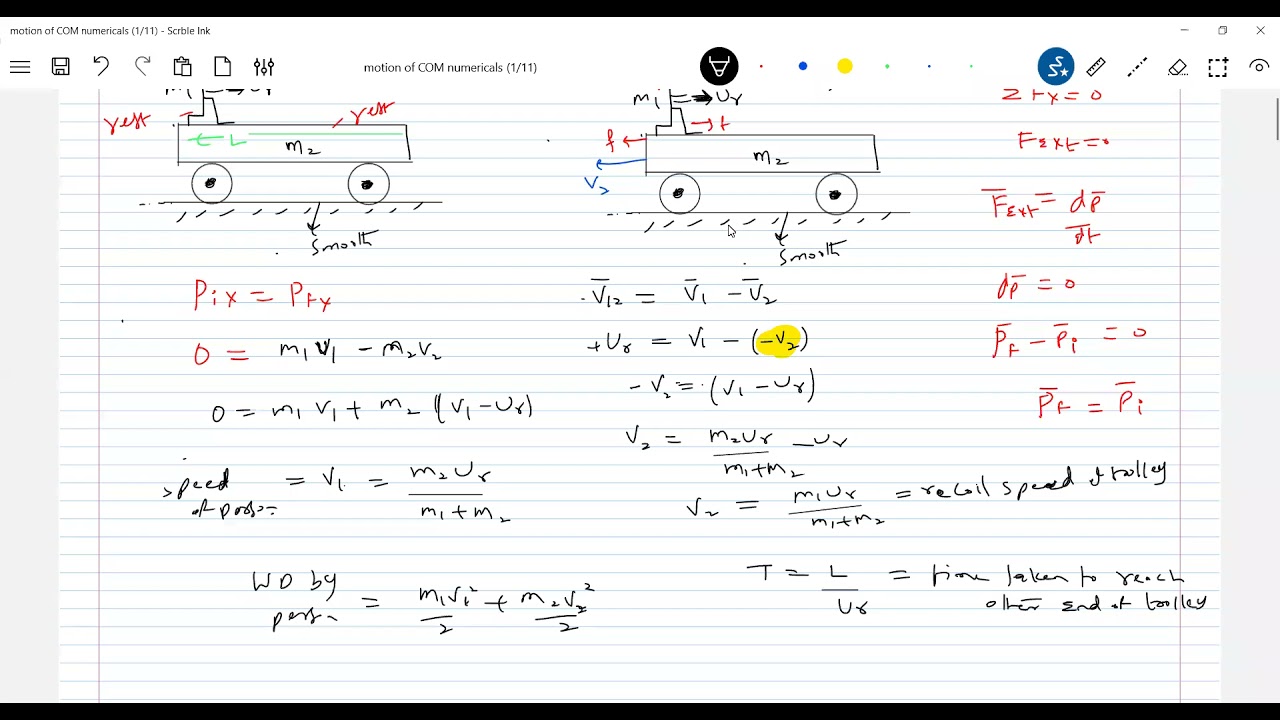 motion of COM numericals (1/11) - Scrble Ink
motion of COM numericals (1/11)
m1 → Ur
rest
rest
L
m2
Smooth
m1 → Ur
f
f
V2
m2
Smooth
ΣFx = 0
FExt = 0
F̄Ext = dp̄/dt
dp̄ = 0
P̄f - P̄i = 0
P̄f = P̄i
Pix = Pfx
0 = m1V1 - m2V2
0 = m1V1 + m2(V1 - Ur)
speed of person = V1 = m2Ur/(m1+m2)
WD by person = m1V1²/2 + m2V2²/2
V̄12 = V̄1 - V̄2
+Ur = V1 - (-V2)
-V2 = (V1 - Ur)
V2 = m2Ur/(m1+m2) - Ur
V2 = m1Ur/(m1+m2) = recoil speed of trolley
T = L/Ur = time taken to reach
other end of trolley